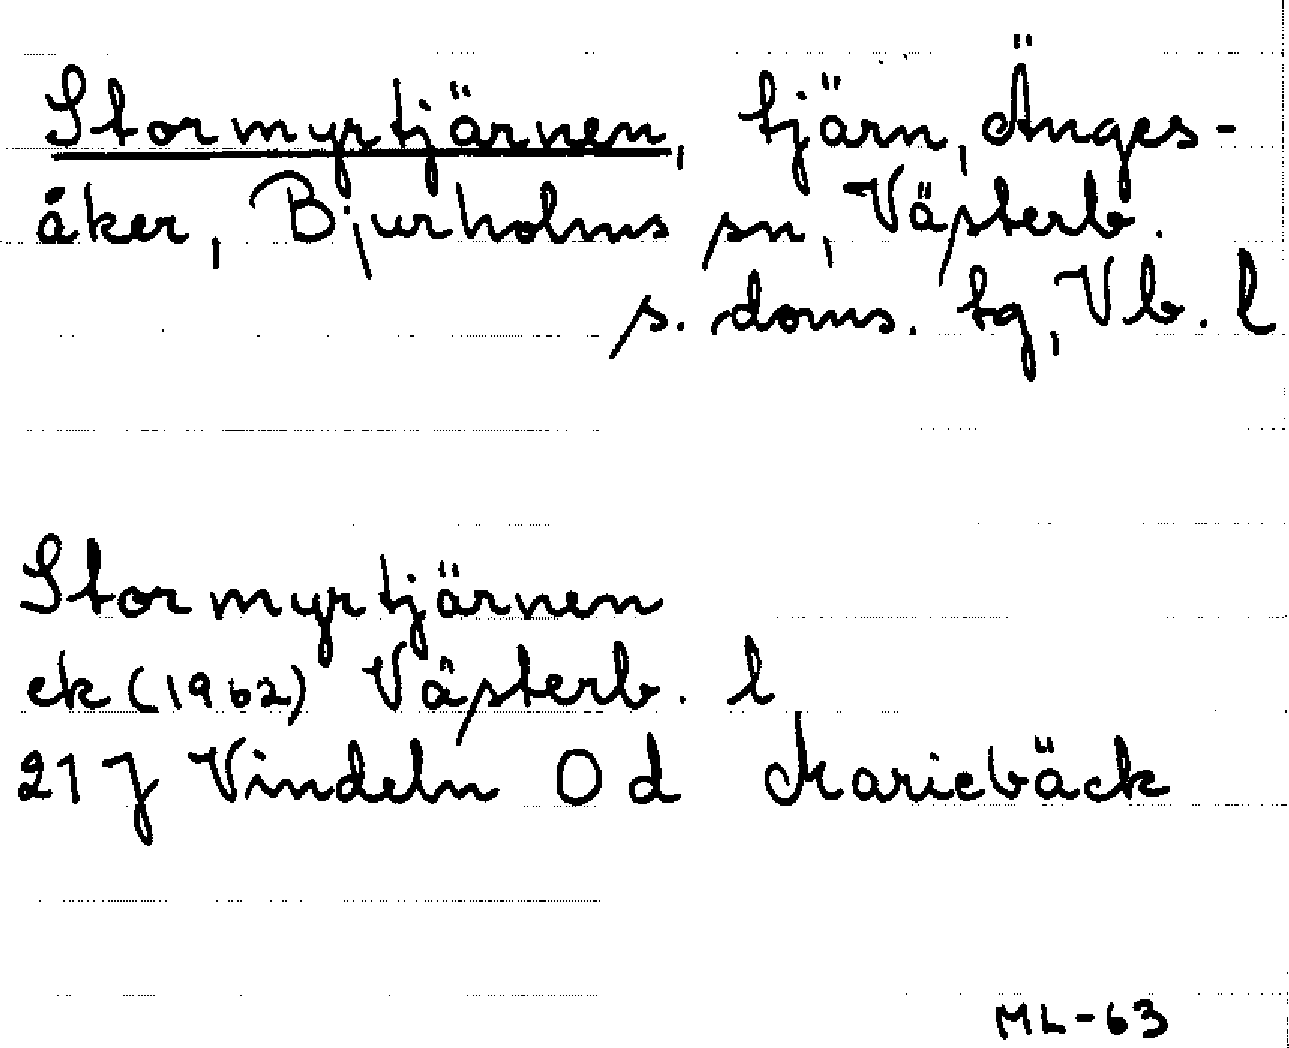 Stormyrtjärnen, tjärn, Änges-
åker, Bjurholms sn, Västerb.
s. doms. tg, Vb. l
Stormyrtjärnen
ek (1962) Västerb. l
21 J Vindeln 0 d Mariebäck
ML-63